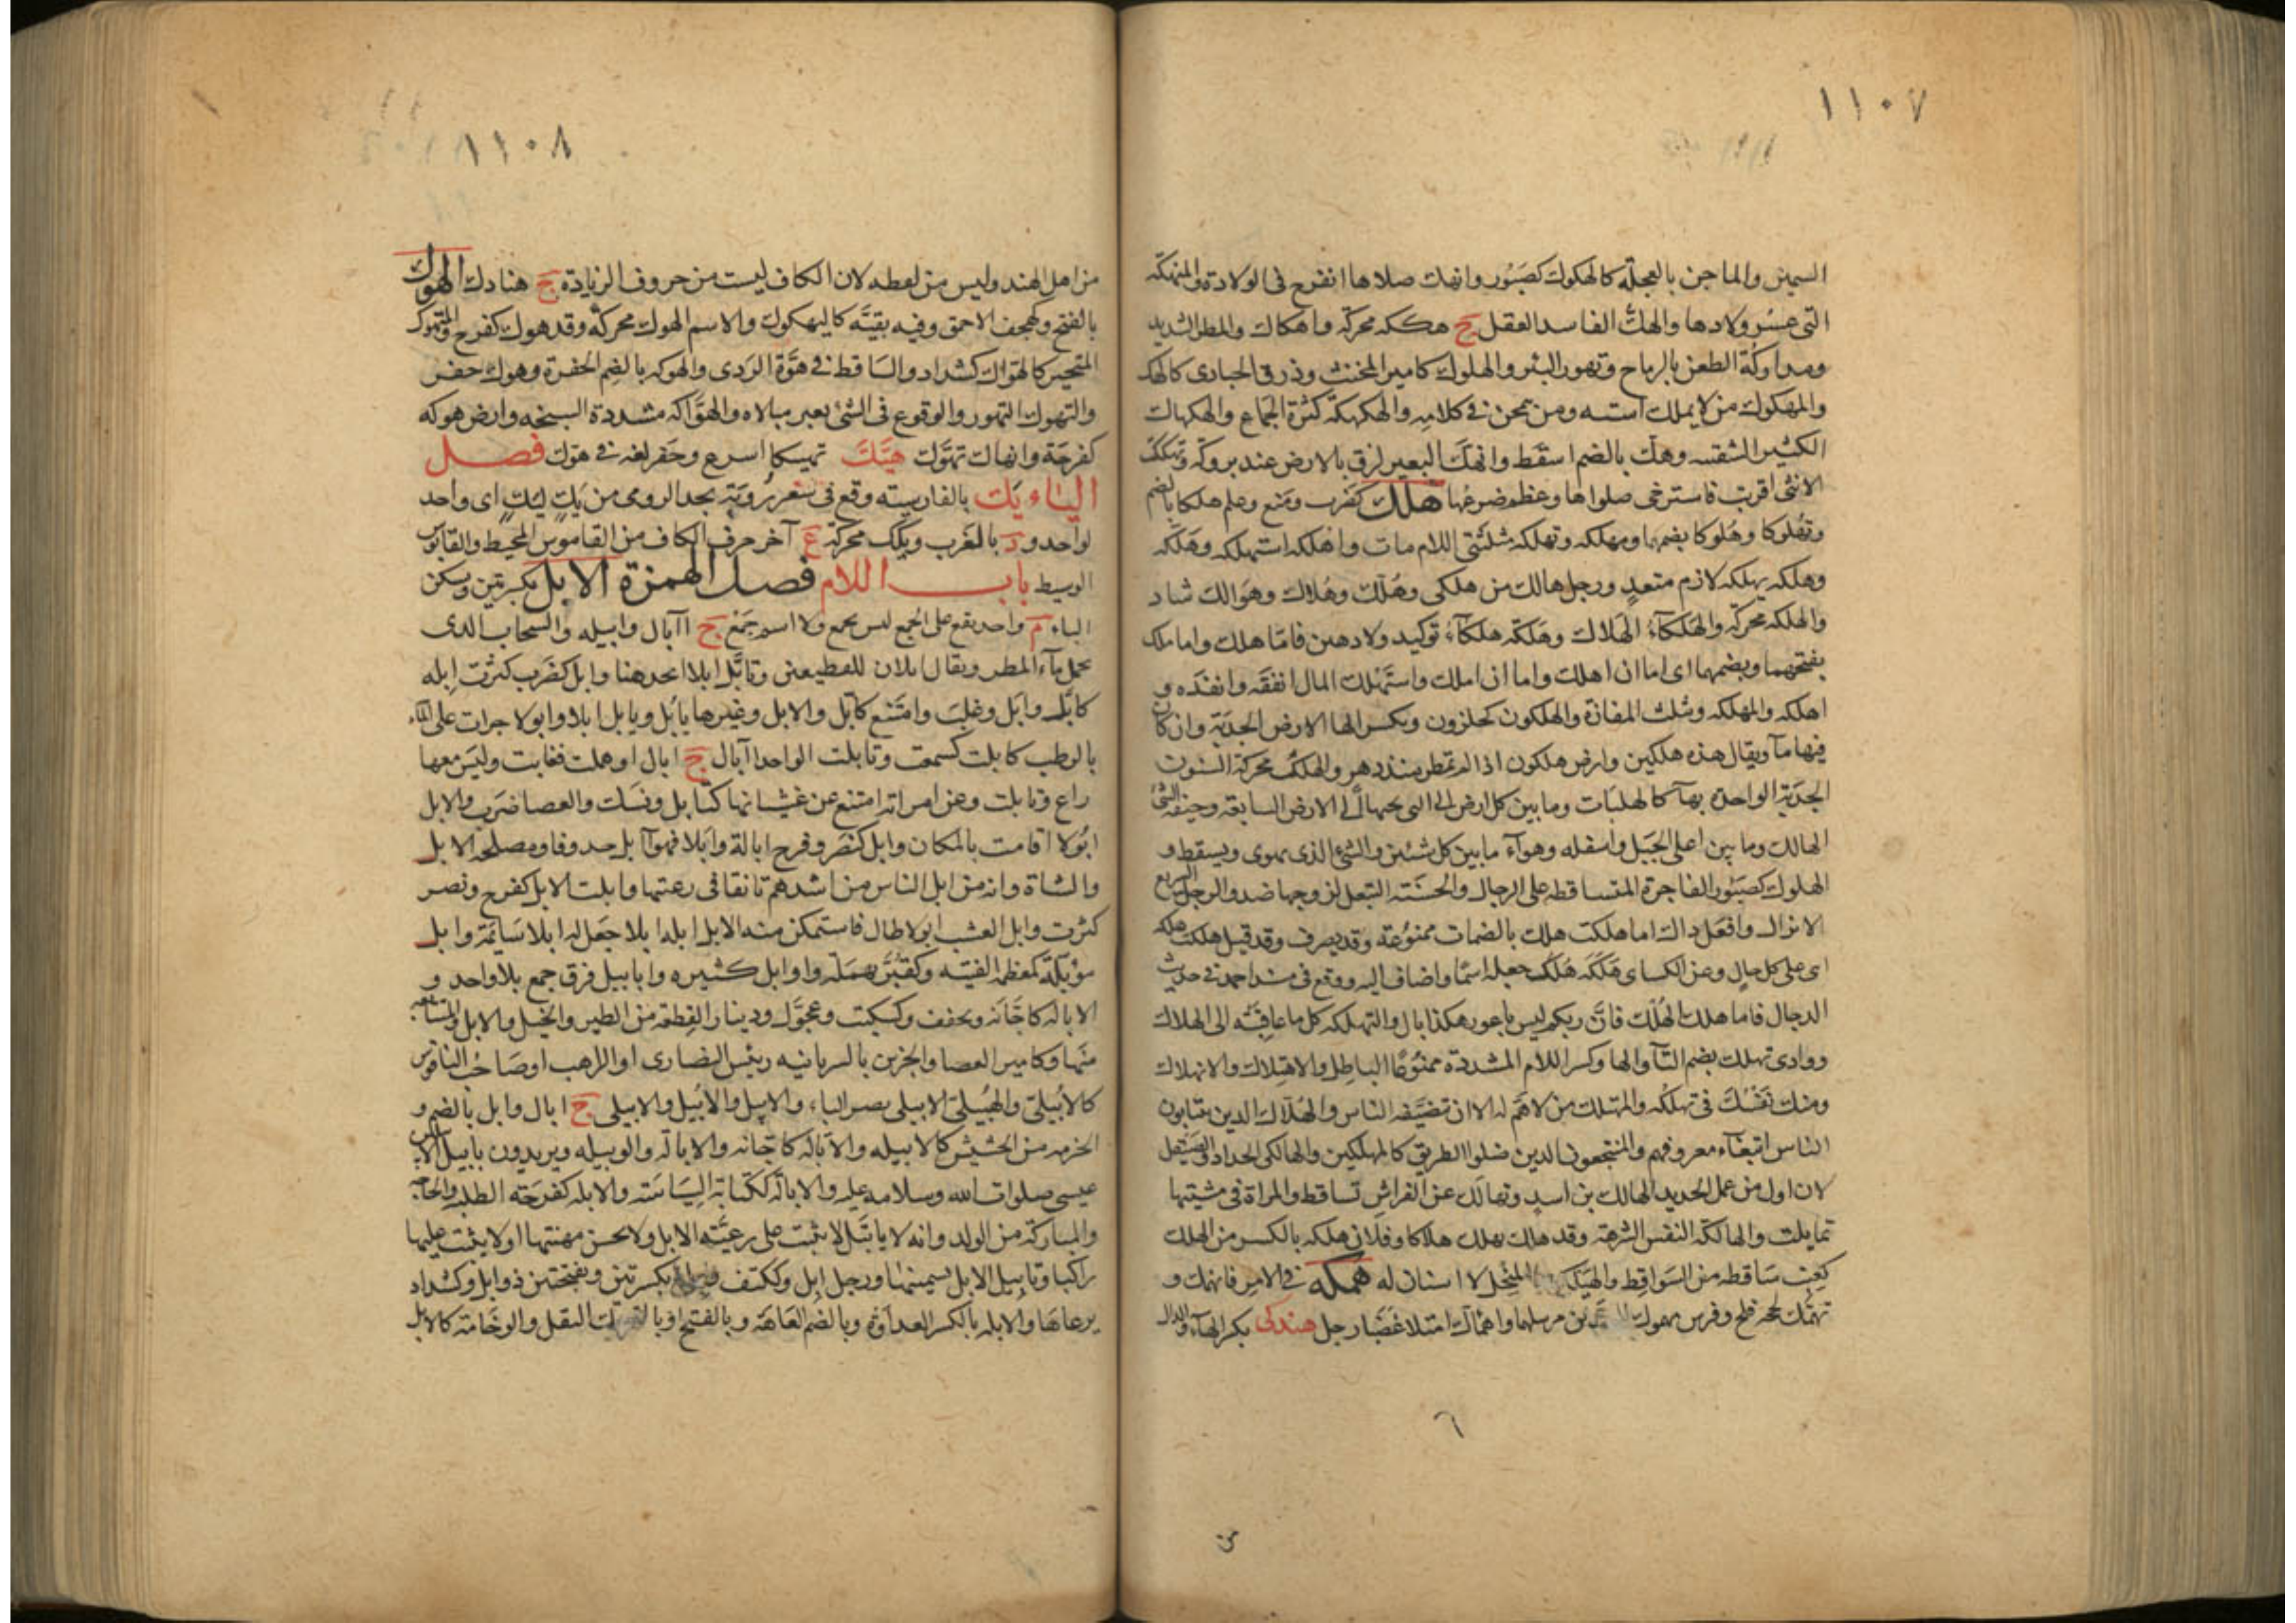 ١١٠٧
السمين والماجن بالعجلة كالهكوك كصبور وانهك صلاها انفرج فى الولادة والمنهكة
التى عسر ولادها والهك الفاسد العقل ج هككه محركة واهكاك والمطر الشديد
ومداركة الطعن بالرماح وتهور البئر والهلوك كامير المخنث وذرق الحبارى كالهك
والمهكوك من لا يملك استه ومن تمحن فى كلامه والهكهكة كثرة الجماع والهكهاك
الكثير الشفسه وهك بالضم اسقط وانهك البعير لزق بالارض عند بروكه وتهككت
الانثى اقربت فاسترخى صلواها وعظم ضرعها هلك كضرب ومنع وعلم هلكا بالضم
وتهلوكا وهلوكا بضمهما ومهلكه وتهلكه مثلثتى اللام مات واهلكه استهلكه وهلكه
وهلكه يهلكه لازم متعد ورجل هالك من هلكى وهلك وهلاك وهوالك شاد
والهلكه محركة والهلكآء الهلاك وهلكة هلكآء توكيد ولاذهبن فاما هلك واما ملك
بفتحهما وبضمهما اى اما ان اهلك واما ان املك واستهلك المال انفقه وانفده و
اهلكه والمهلكه وتثلث المفازة والهلكون كحلزون وبكسر الها الارض الجدبة وان كان
فيها مآ ويقال هذه هلكين وارض هلكون اذا لم تمطر منذ دهر والهلك محركة السنون
الجدبة الواحدة بهآ كالهلكات وما بين كل ارض الى التى تحتها الى الارض السابعة وجيفة الشئ
الهالك وما بين اعلى الجبل واسفله وهوآء ما بين كل شيئين والشئ الذى يهوى ويسقط و
الهلوك كصبور الفاجرة المتساقطه على الرجال والحسنة التبعل لزوجها ضد والرجل السريع
الانزال وافعل ذاك اما هلكت هلك بالضمات ممنوعة وقد يصرف وقد قيل هلكت هلكه
اى على كل حال وعن الكساى هلكة هلك جعله اسما واضاف اليه ووقع فى مسند احمد فى حديث
الدجال فاما هلك الهلك فان ربكم ليس باعور هكذا بال والتهلكه كل ما عاقبته الى الهلاك
ووادى تهلك بضم التآ والها وكسر اللام المشددة ممنوعا الباطل والاهتلاك والانهلاك
ومنك نفسك فى تهلكه والمهتلك من لا هم له الا ان تضيفه الناس والهلاك الدين ينتابون
الناس ابتغآء معروفهم والمنتجعون الدين ضلوا الطريق كالمهلكين والهالكى الحداد والصيقل
لان اول من عمل الحديد الهالك بن اسد وتهالك عن الفراش تساقط والمراة فى مشيتها
تمايلت والهالكة النفس الشرهة وقد هلك يهلك هلاكا وفلان هلكه بالكسر من الهلك
كعنب ساقطه من السواقط والهيلكون المنجل لا اسنان له همكه فى الامر فانهمك و
تهمك لجه فلج وفرس مهموك المعدين مرسلهما واهماك امتلا غضبا رجل هندكى بكسر الهآء والدال
٦
من
١١٠٨
من اهل الهند وليس من لفظه لان الكاف ليست من حروف الزيادة ج هنادك الهوك
بالفتح وكهجف الاحمق وفيه بقية كاليهكوك والاسم الهوك محركة وقد هوك كفرح والمتهوك
المتحير كالهواك كشداد والساقط فى هوة الردى والهوكه بالضم الحفرة وهوك حفر
والتهوك التهور والوقوع فى الشئ بعير مبالاه والهواكه مشددة السبخه وارض هوكه
كفرحة وانهاك تهوك هيك تهيكا اسرع وحفر لغه فى هوك فصل
الياء يك بالفارسيه وقع فى شعر رؤبة بحد الرومى من يك ليك اى واحد
لواحد و د بالغرب ويكك محركة ع آخر حرف الكاف من القاموس المحيط والقابوس
الوسيط باب اللام فصل الهمزة الابل بكسرتين وتسكن
الباء م واحد يقع على الجمع ليس بجمع ولا اسم جمع ج اآبال وابيله والسحاب الدى
يحمل مآء المطر ويقال ابلان للقطيعين وتابل ابلا اتخدهنا وابل كضرب كثرت ابله
كابل وابل وغلب وامتنع كابل والابل وغيرها يابل ويابل ابلا وابولا جزات على الماء
بالرطب كابلت كسمعت وتابلت الواحد اآبال ج ابال اوهملت فغابت وليس معها
راع وتابلت وعن امراته امتنع عن غشيانها كتابل ونسك والعصا ضرب والابل
ابولا اقامت بالمكان وابل كنصر وفرح ابالة وابلا فهو آبل حدق وفاو مصلحة الابل
والشاة وانه من ابل الناس من اشدهم تانقا فى رعيتها وابلت الابل كفرح ونصر
كثرت وابل العشب ابولا طال فاستمكن منه الابل ابله ابلا جعل له ابلا سائمة وابل
مؤبلة كمعظمه للقنيه وكقبر مهملة واوابل كثيره وابابيل فرق جمع بلا واحد و
الاباله كاجانه ويخفف وكسكيت وعجول ودينار القطعه من الطير والخيل والابل والمتتابعه
منها وكامير العصا والحزين بالسريانيه رئيس النصارى او الراهب او صاحب الناقوس
كالابيلى والهيبلى الابيلى بضم الباء والايبل والابيل والابيلى ج ابال وابل بالضم و
الحزمه من الحشيش كالابيله والآباله كاجانه والاباله والوبيله ويريدون بابيل الابيلين
عيسى صلوات الله وسلامه عليه والاباله ككتابة السياسة والابله كفرحة الطلبه والحاجه
والمباركة من الولد وانه لا ياتبل لا يثبت على رعية الابل ولا يحسن مهنتها اولا يثبت عليها
راكبا وتابيل الابل تسمينها ورجل ابل وككتف بكسرتين وبفتحتين ذو ابل وكشداد
يرعاها والابله بالكسر العداوة وبالضم العاهة وبالفتح او بالتحريك الثقل والوخامة كالابل